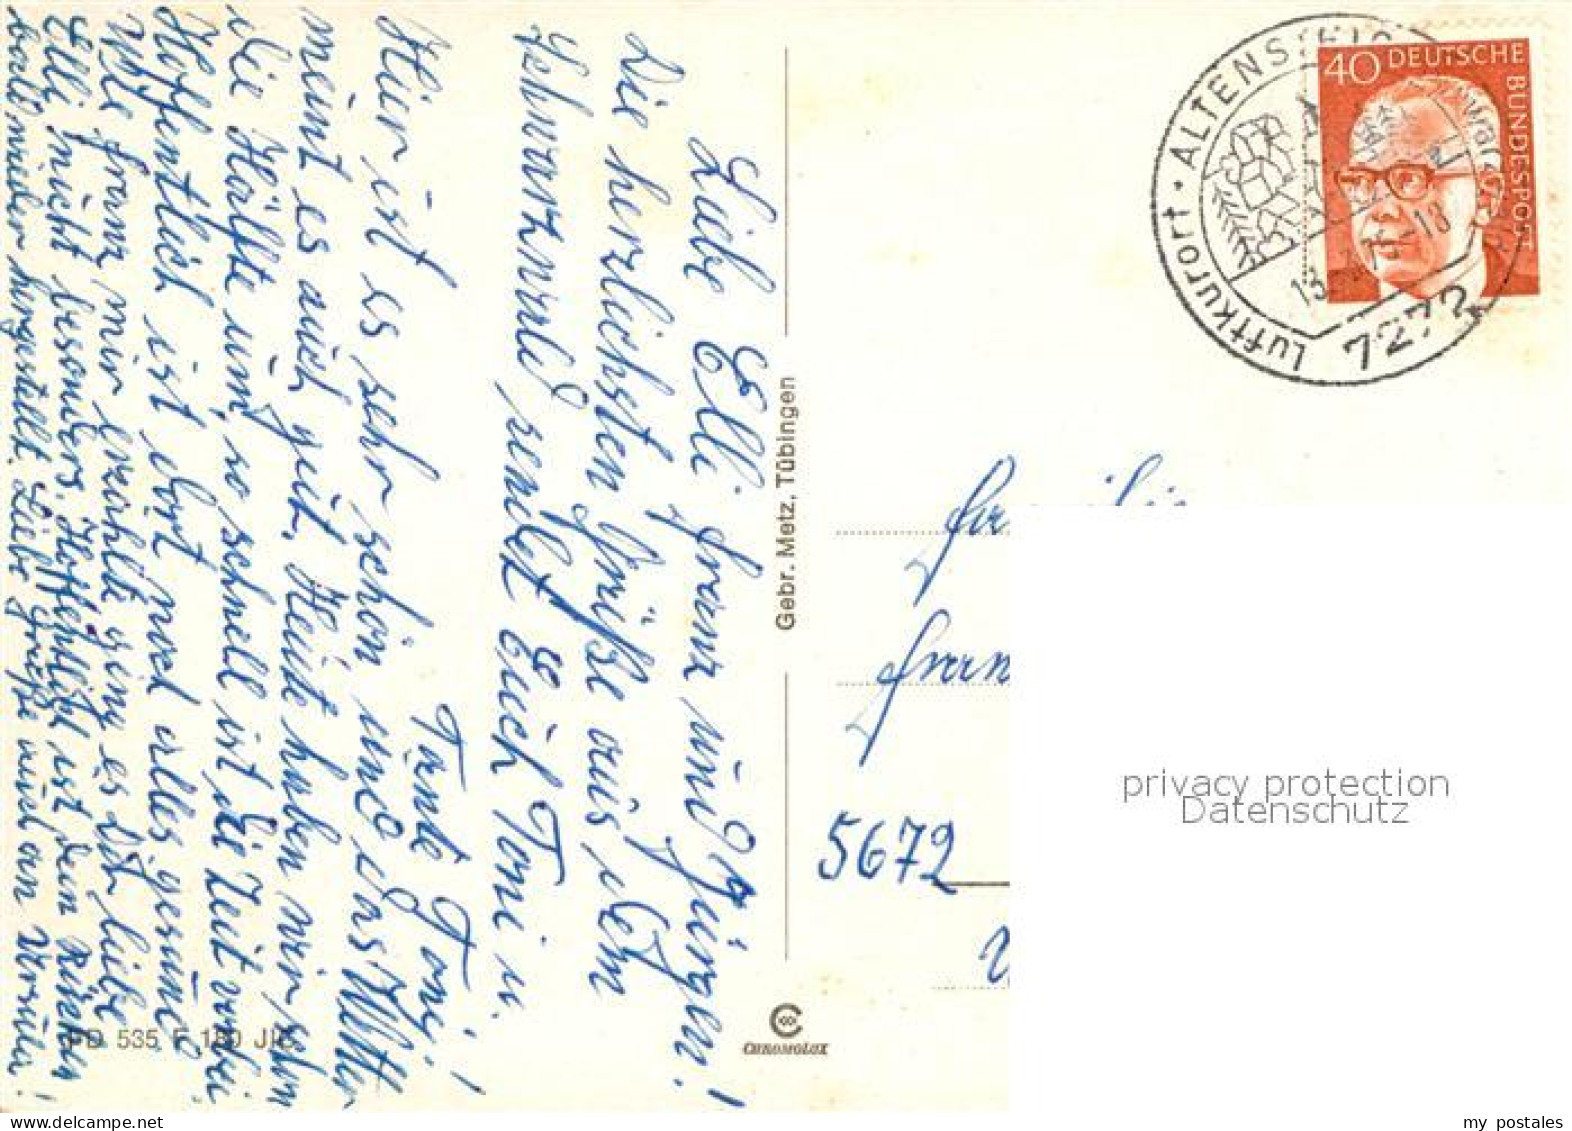 Liebe Elli Franz und Jürgen!
Die herzlichsten Grüße aus dem
Schwarzwald sendet Euch Toni u.
Tante Toni!
Hier ist es sehr schön und das Wetter
meint es auch gut. Heute haben wir schon
die Hälfte um, so schnell ist die Zeit vorbei
Hoffentlich ist dort noch alles gesund
Wie Franz mir erzählte ging es Dir liebe
Elli nicht besonders. Hoffentlich ist dein Rücken
bald wieder hergestellt. Liebe Grüße auch an Ursula!
PD 535 F 180
Gebr. Metz, Tübingen
CHROMOLUX
Luftkurort · ALTENSTEIG
7272
40 DEUTSCHE
BUNDESPOST
5672
privacy protection
Datenschutz
my postales
WWW.DELCAMPE.NET